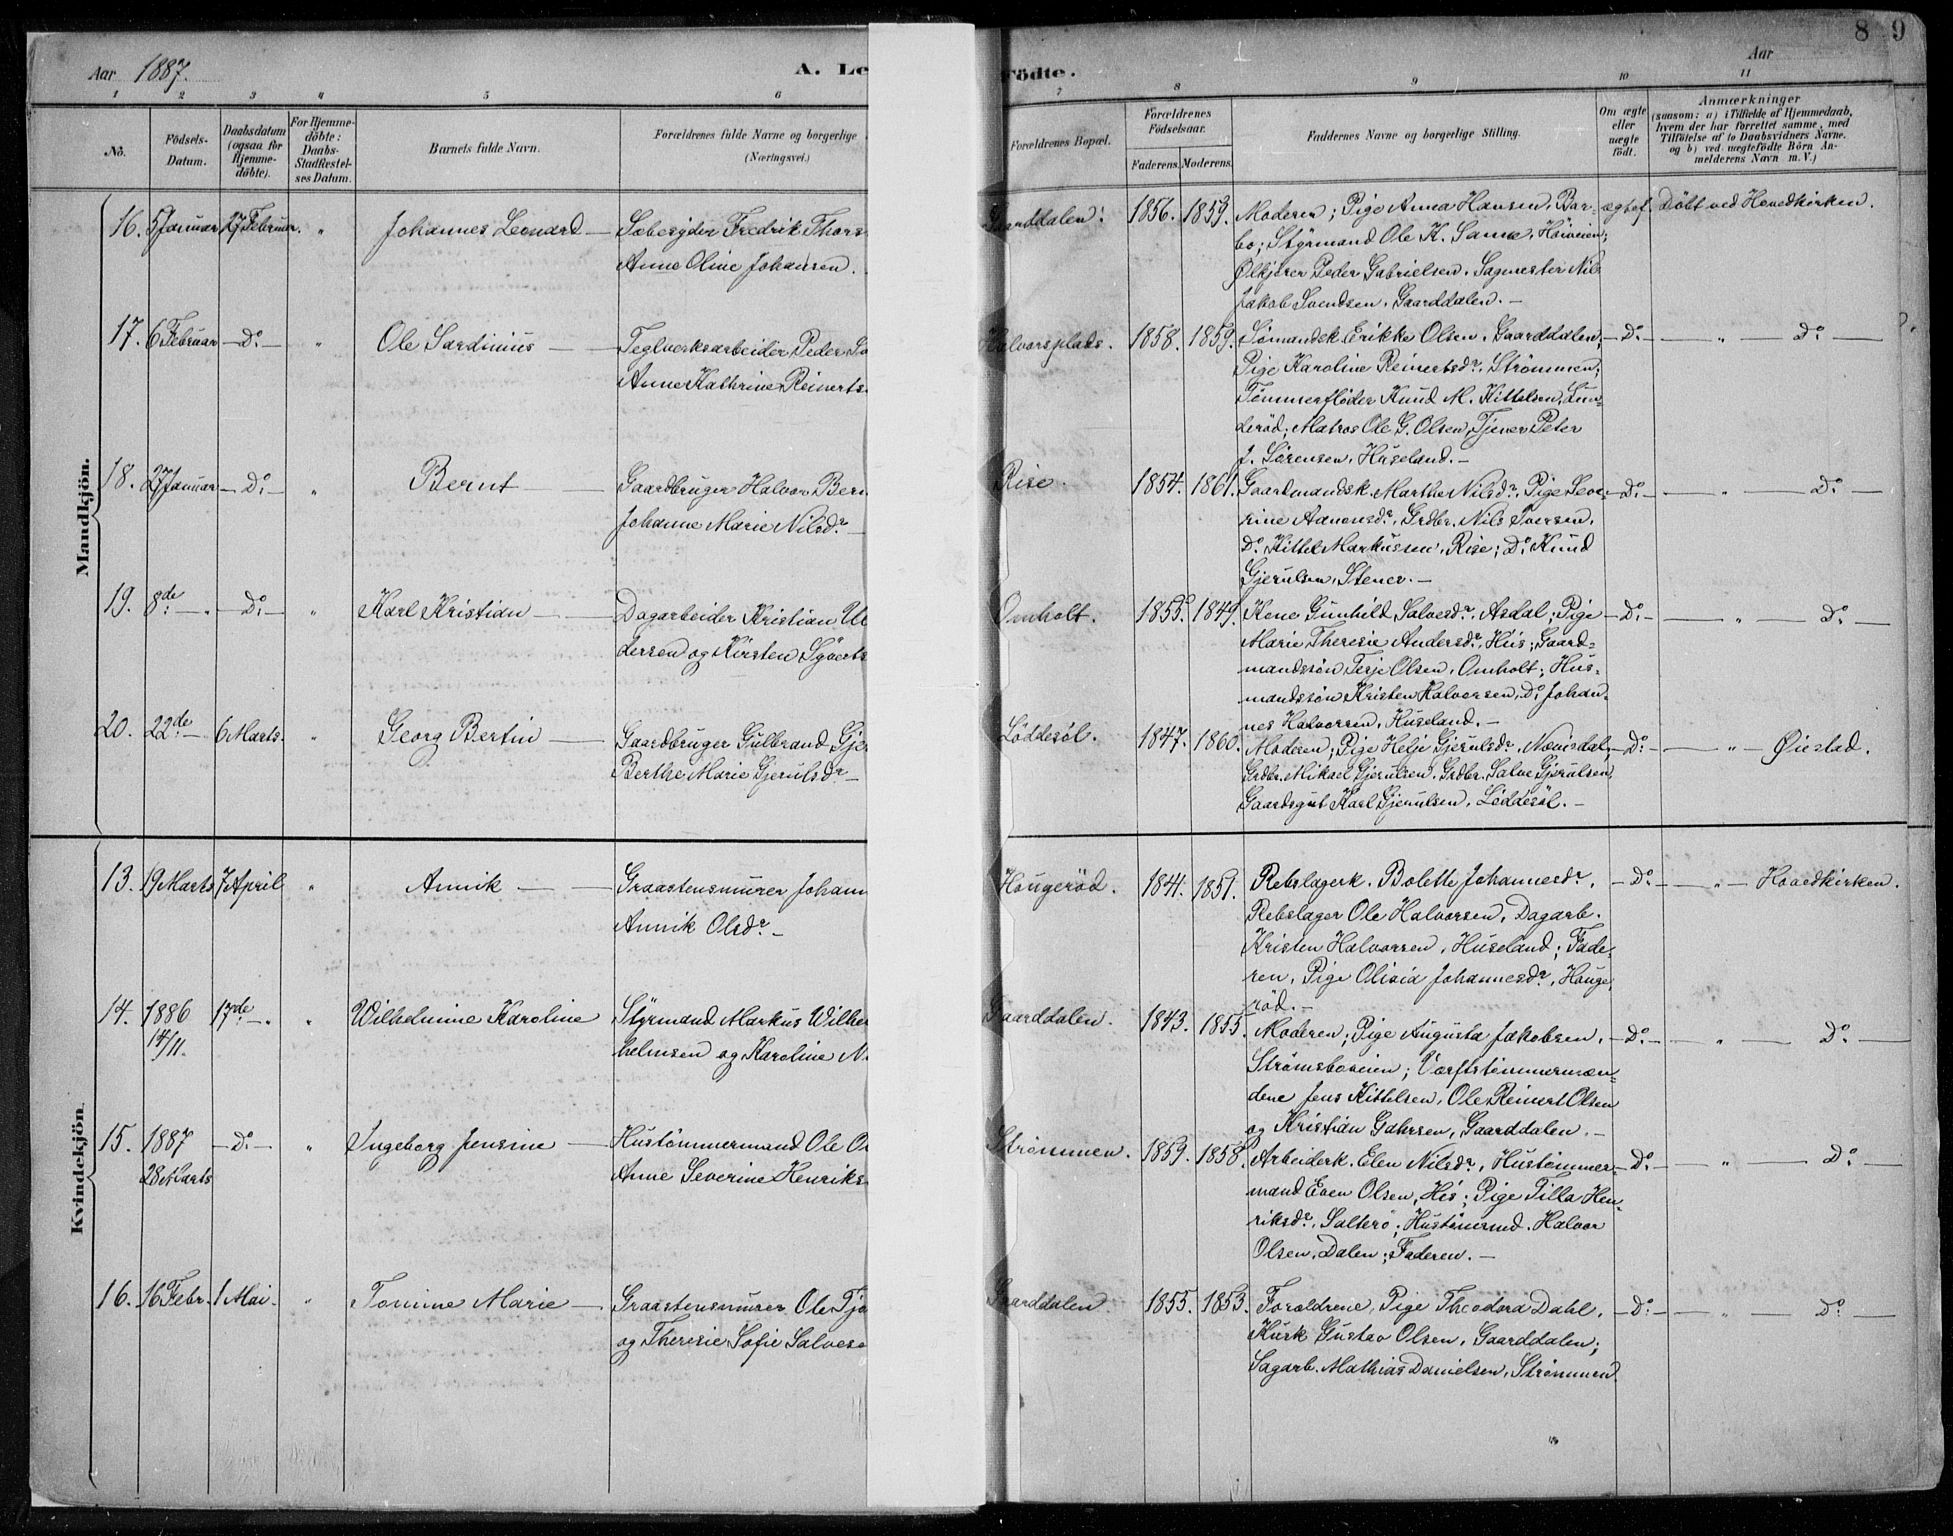 8 9
Aar 1887.
A. Le
Födte.
Aar
1 2 3 4 5 6 7 8 9 10 11
No.
Födsels-Datum.
Daabsdatum (ogsaa for Hjemmedöbte).
For Hjemmedöbte: Daabs-Stadfæstelses Datum.
Barnets fulde Navn.
Forældrenes fulde Navne og borgerlige
(Næringsvei.)
Forældrenes Bopæl.
Forældrenes Födselsaar.
Faderens. Moderens.
Faddernes Navne og borgerlige Stilling.
Om ægte eller uægte födt.
Anmærkninger
(saasom: a) i Tilfælde af Hjemmedaab, hvem der har forrettet samme, med Tilföielse af to Daabsvidners Navne. og b) ved uægtefödte Börn Anmelderens Navn m. V.)
Mandkjön.
16. 5 Januar 27 Februar. " Johannes Leonard — Sæbesyder Fredrik Thors
Anne Oline Johansen.
Gaarddalen. 1856. 1859. Moderen; Pige Anna Hansen, Bar-
bo; Styrmand Ole K. Samu, Høiveien;
Ølkjører Peder Gabrielsen. Sagmester Nils
Jakob Svendsen, Gaarddalen. —
ægtef. Döbt ved Hovedkirken.
17. 6 Februar — Do — " Ole Sardinius — Teglverksarbeider Peder So
Anne Kathrine Reinerts
Halvorsplads. 1858. 1859. Sømandsk. Erikke Olsen, Gaarddalen;
Pige Karoline Reinertsdr, Strömmen;
Tømmerfløder Knud M. Kittelsen, Lun-
deröd; Matros Ole G. Olsen, Tjener Peter
J. Sörensen, Huseland. —
— Do — — " — Do —
18. 27 Januar — Do — " Bernt — Gaardbruger Halvor Bern
Johanne Marie Nilsdr —
Rise. 1854. 1861. Gaardmandsk. Marthe Nilsdr, Pige Seve-
rine Aanonsdr, Grdbr. Nils Iversen,
Do Kittel Markussen, Rise; Do Knud
Gjerulsen, Stener. —
— Do — — " — Do —
19. 8de — " — Do — " Karl Kristian — Dagarbeider Kristian Ul
dersen og Kirsten Syverts
Omholt. 1855. 1849. Kone Gunhild Salvesdr, Asdal; Pige
Marie Theresie Andersdr, Hus; Gaard-
mandssøn Terje Olsen, Omholt; Hus-
mandssøn Kristen Halvorsen, Do Johan-
nes Halvorsen, Huseland. —
— Do — — " — Do —
20. 22de — 6 Marts. " Georg Bertin — Gaardbruger Gulbrand Gje
Berthe Marie Gjerulsdr —
Löddesöl. 1847. 1860. Moderen; Pige Helje Gjerulsdr, Næsdal;
Grdbr. Mikael Gjerulsen. Grdbr. Salve Gjerulsen,
Gaardsgut Karl Gjerulsen, Löddesöl. —
— Do — — " — Øiestad.
Kvindekjön.
13. 19 Marts 7 April " Annik — Graastensmurer Johann
Annik Olsdr —
Hougeröd. 1841. 1851. Rebslagerk. Bolette Johannesdr,
Rebslager Ole Halvorsen, Dagarb.
Kristen Halvorsen, Huseland; Fade-
ren, Pige Olivia Johannesdr, Houge,
röd. —
— Do — — " — Hovedkirken.
14. 1886 14/11. 17de — " " Wilhelmine Karoline Styrmand Markus Wilhe
helmsen og Karoline N
Gaarddalen. 1843. 1855. Moderen; Pige Augusta Jakobsen,
Strömsboveien; Værftstömmermæn-
dene Jens Kittelsen, Ole Reinert Olsen
og Kristian Gahrsen, Gaarddalen. —
— Do — — " — Do —
15. 1887 28 Marts — Do — " Ingeborg Jensine — Hustömmermand Ole O
Anne Severine Henriks
Strömmen. 1859. 1858. Arbeiderk. Elen Nilsdr, Hustömmer-
mand Even Olsen, His; Pige Tilla Hen
riksdr, Salterö; Hustömrmd. Halvor
Olsen, Dalen; Faderen. —
— Do — — " — Do —
16. 16 Febr. 1 Mai. " Tomine Marie — Graastensmurer Ole Tjo
og Theresie Sofie Salvese
Gaarddalen. 1855. 1853. Forældrene, Pige Theodora Dahl,
Kusk Gustav Olsen, Gaarddalen;
Sagarb. Mathias Danielsen, Strömmen.
— Do — — " — Do —